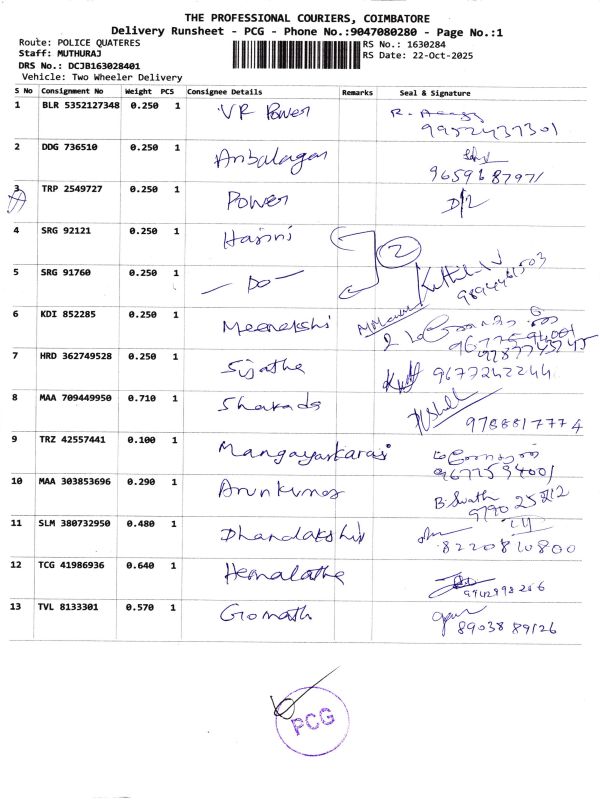 THE PROFESSIONAL COURIERS, COIMBATORE
Delivery Runsheet - PCG - Phone No.:9047080280 - Page No.:1
Route: POLICE QUATERES
Staff: MUTHURAJ
DRS No.: DCJB163028401
Vehicle: Two Wheeler Delivery
RS No.: 1630284
RS Date: 22-Oct-2025
S No Consignment No Weight PCS Consignee Details Remarks Seal & Signature
1 BLR 5352127348 0.250 1 VR Power
9952437301
2 DDG 736510 0.250 1 Anbalagan
9659687971
3 TRP 2549727 0.250 1 Power
4 SRG 92121 0.250 1 Harini 2
5 SRG 91760 0.250 1 — Do —
6 KDI 852285 0.250 1 Meenakshi
7 HRD 362749528 0.250 1 Sujatha
9677242244
8 MAA 709449950 0.710 1 Sharada
9788817774
9 TRZ 42557441 0.100 1 Mangayarkarasi
9677594001
10 MAA 303853696 0.290 1 Arunkumar
B. Swath
11 SLM 380732950 0.480 1
8220810800
12 TCG 41986936 0.640 1 Hemalatha
13 TVL 8133301 0.570 1 Gomath
8903889126
PCG